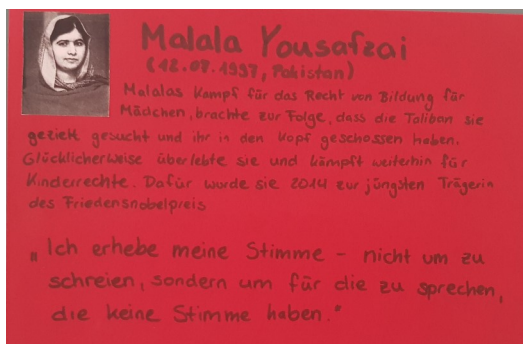 Malala Yousafzai
(12.07.1997, Pakistan)
Malalas Kampf für das Recht von Bildung für
Mädchen, brachte zur Folge, dass die Taliban sie
gezielt gesucht und ihr in den Kopf geschossen haben.
Glücklicherweise überlebte sie und kämpft weiterhin für
Kinderrechte. Dafür wurde sie 2014 zur jüngsten Trägerin
des Friedensnobelpreis
„Ich erhebe meine Stimme - nicht um zu
schreien, sondern um für die zu sprechen,
die keine Stimme haben."